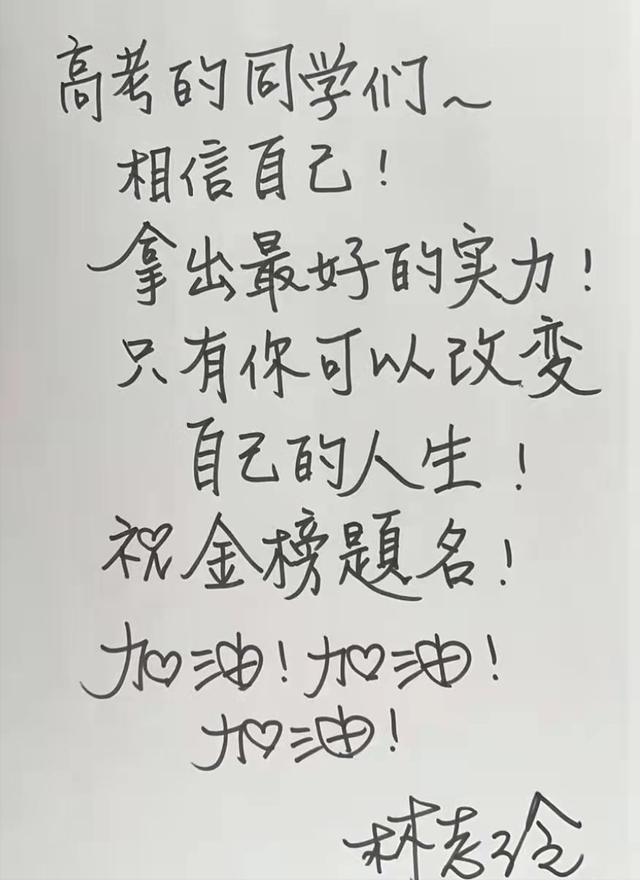 高考的同学们~
相信自己！
拿出最好的实力！
只有你可以改变
自己的人生！
祝金榜题名！
加油！加油！
加油！
林志玲